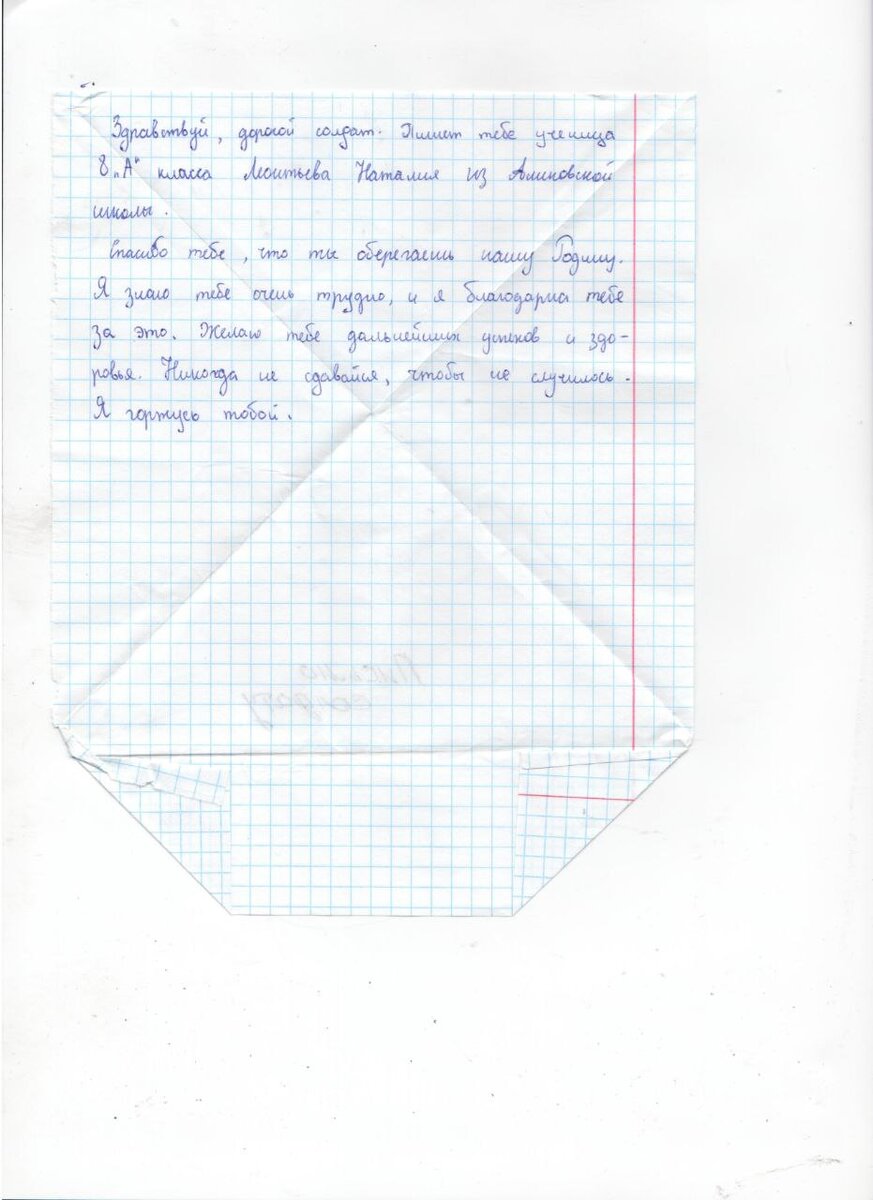 Здравствуй, дорогой солдат. Пишет тебе ученица
8 „А" класса Леонтьева Наталия из Алиновской
школы.
Спасибо тебе, что ты оберегаешь нашу Родину.
Я знаю тебе очень трудно, и я благодарна тебе
за это. Желаю тебе дальнейших успехов и здо-
ровья. Никогда не сдавайся, чтобы не случилось.
Я горжусь тобой.
Письмо
солдату